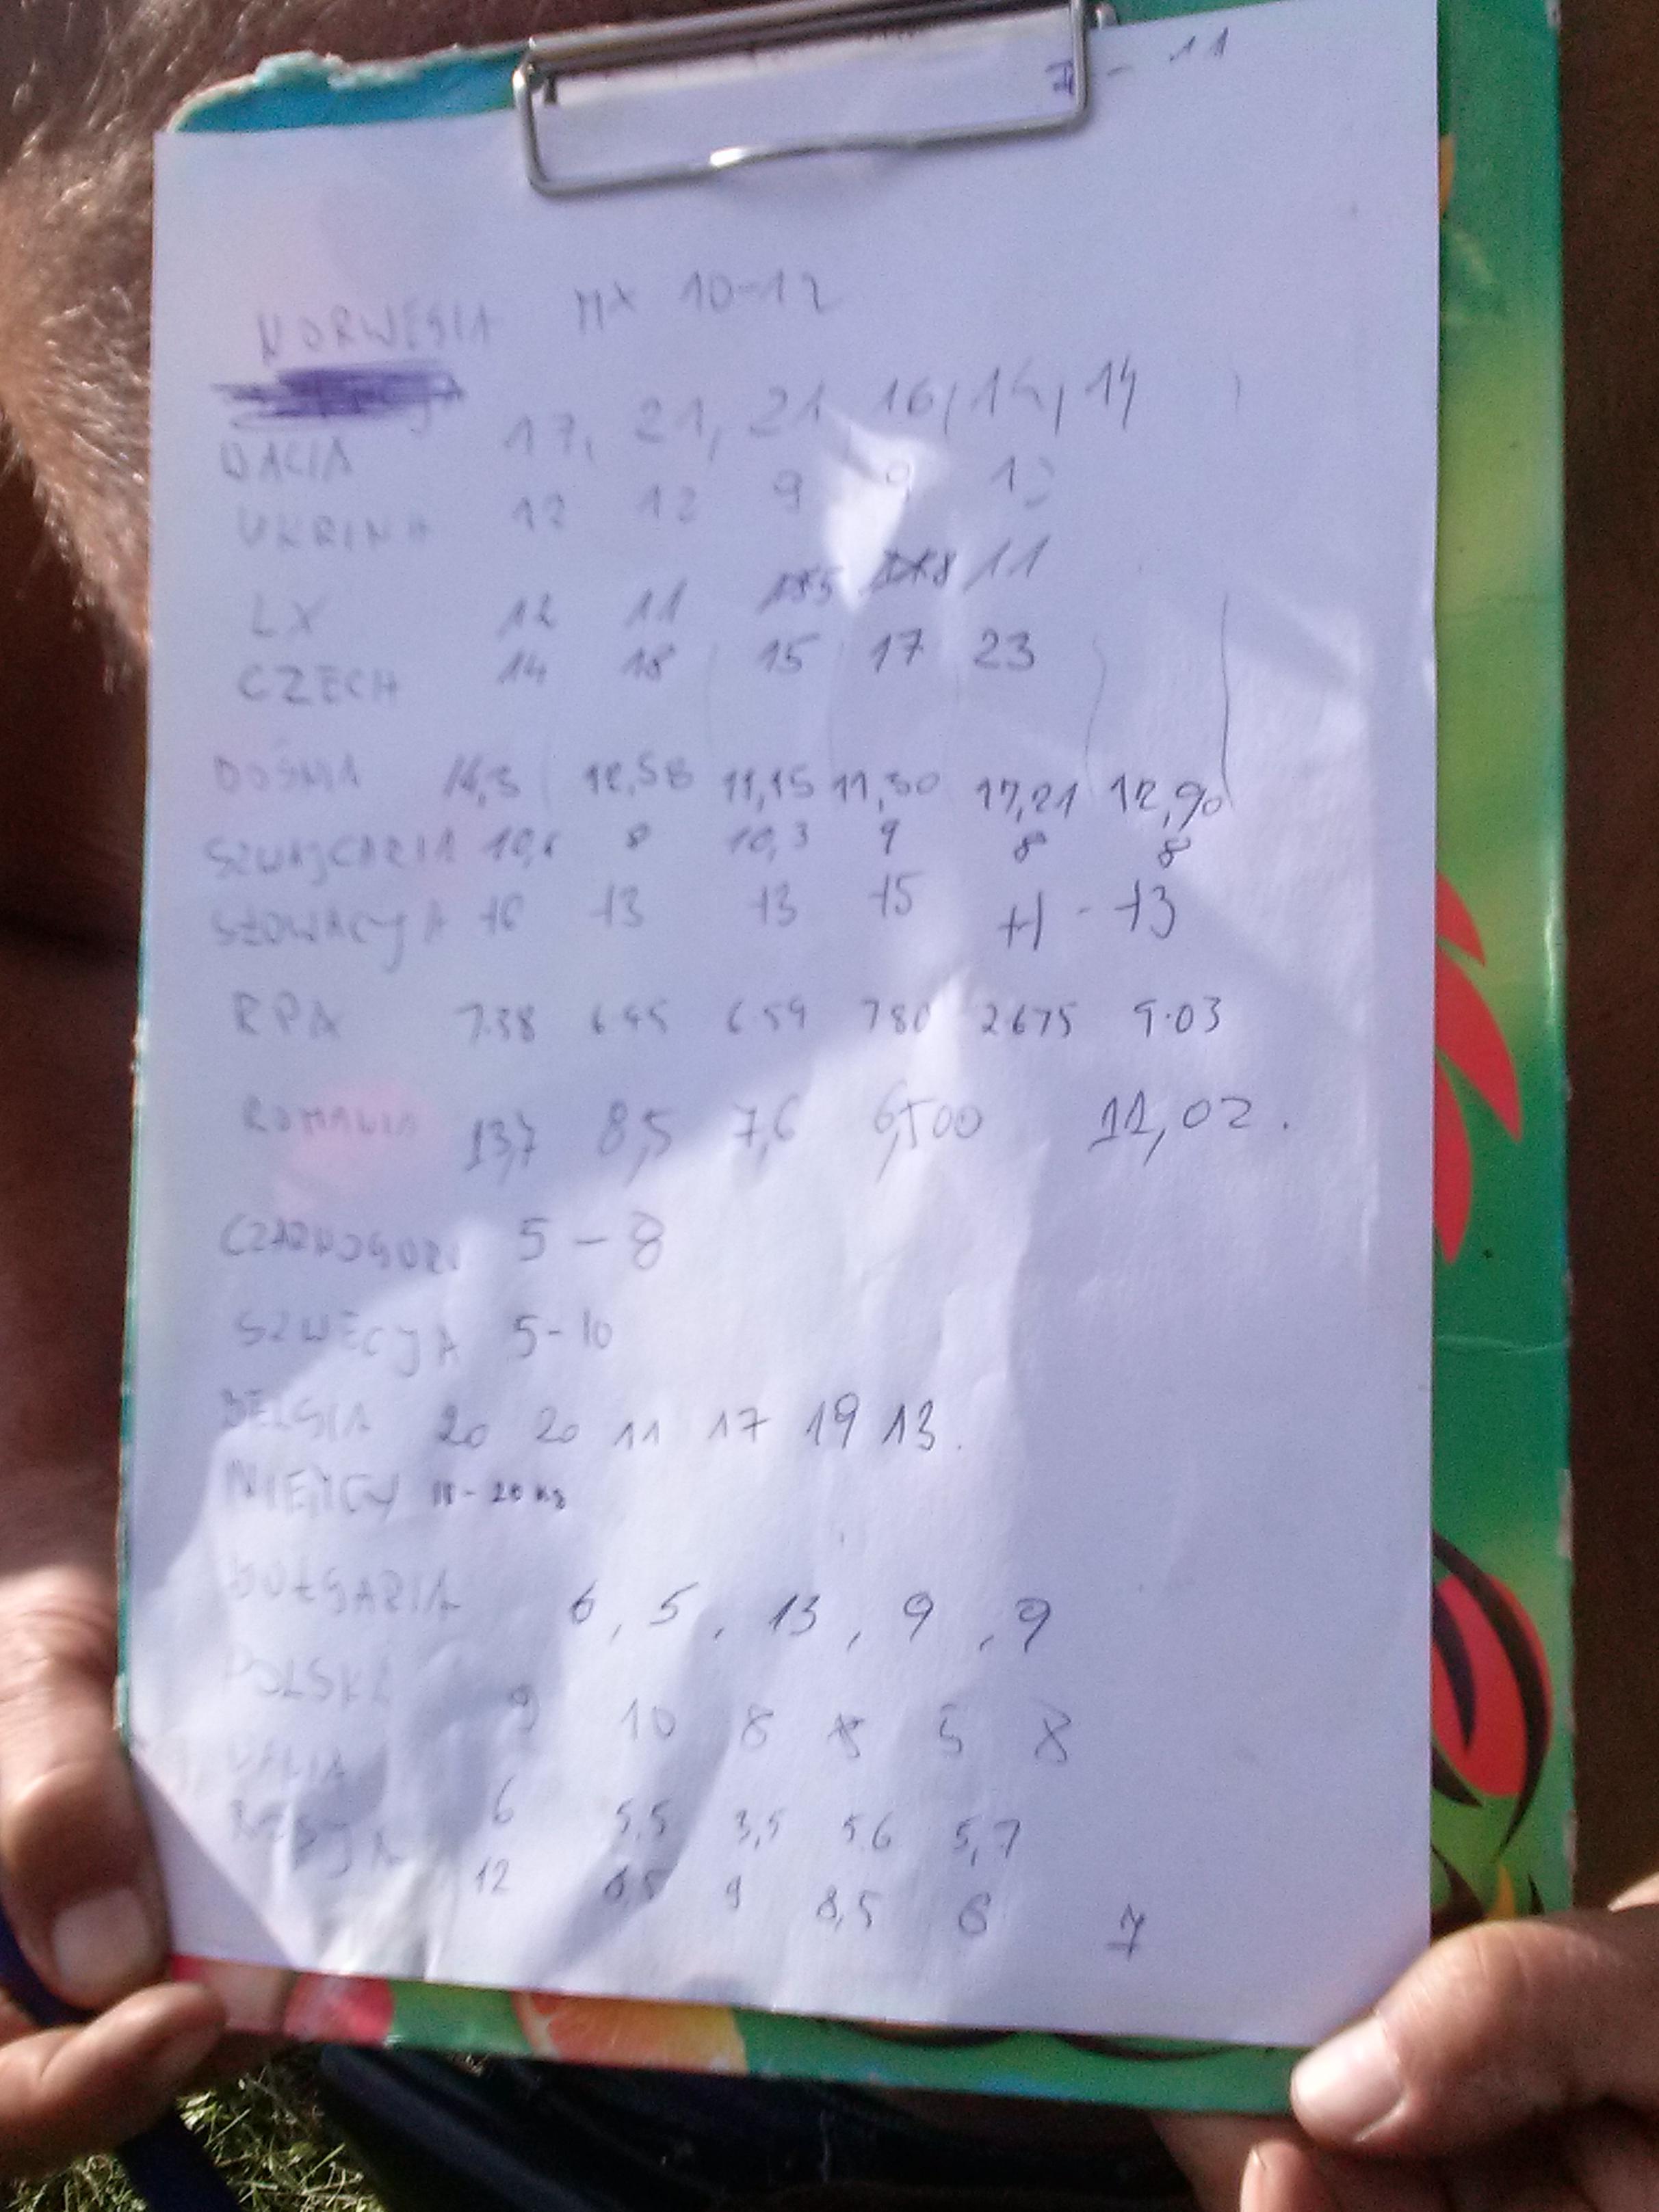 - 11
NORWEGIA MX 10-12
DACIA 17, 21, 21, 16, 14, 14
UKRINA 12 12 9 9
LX 12 11 11
CZECH 14 18 15 17 23
BOŚNIA 14,3 12,58 11,15 11,30 17,21 12,90
SZWAJCARIA 8 10,3 9 8 8
SŁOWACYJA 16 13 13 15 11 - 13
RPA 7.38 6.45 6.59 780 2675 9.03
ROMANIA 13,7 8,5 7,6 11,02.
CZARNOGORI 5 - 8
SZWECYJA 5-10
BELGIA 20 20 11 17 19 13.
NIEMCY 18-20 kg
BUŁGARIA 6, 5, 13, 9, 9
POLSKA 9 10 8 8 5 8
DACIA 6 5,5 3,5 5.6 5,7
12 8,5 9 8,5 6 7